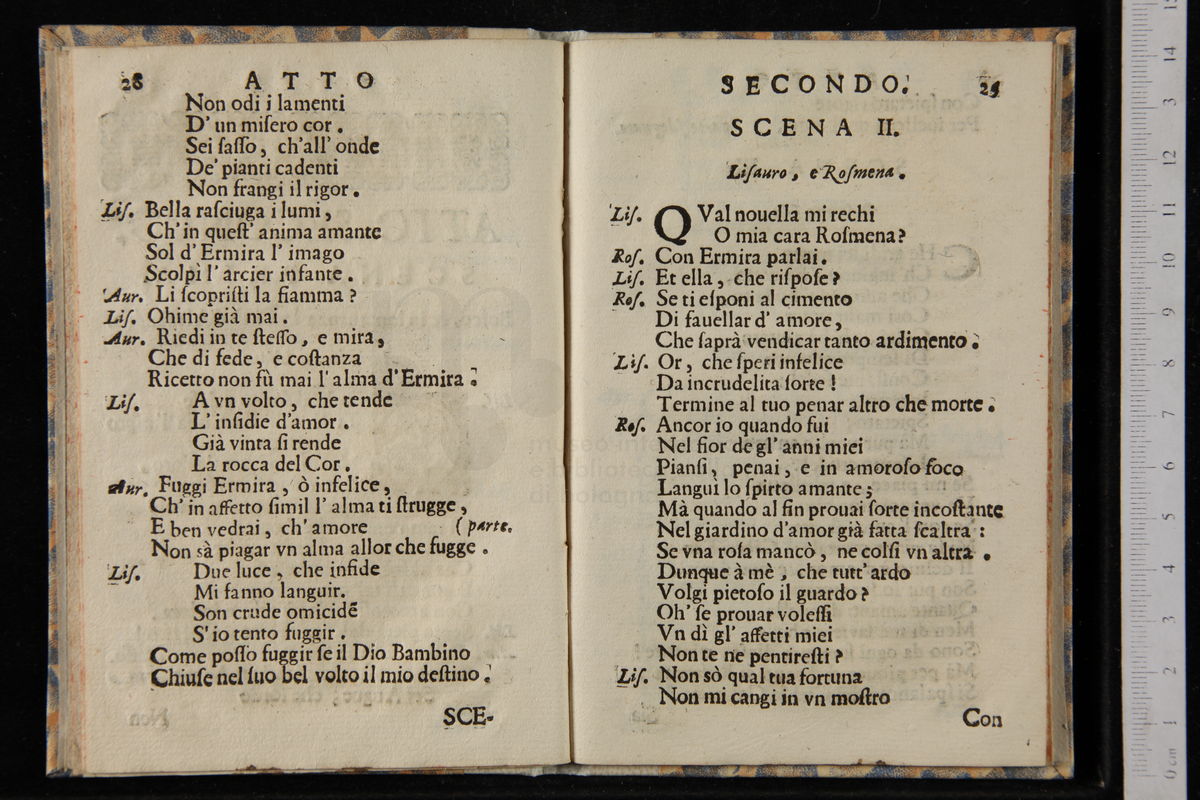 28 ATTO
Non odi i lamenti
D' un miſero cor.
Sei ſaſſo, ch'all' onde
De' pianti cadenti
Non frangi il rigor.
Liſ. Bella raſciuga i lumi,
Ch' in queſt' anima amante
Sol d' Ermira l' imago
Scolpì l' arcier infante.
Aur. Li ſcopriſti la fiamma?
Liſ. Ohime già mai.
Aur. Riedi in te ſteſſo, e mira,
Che di fede, e coſtanza
Ricetto non fù mai l' alma d' Ermira.
Liſ. A vn volto, che tende
L' inſidie d'amor.
Già vinta ſi rende
La rocca del Cor.
Aur. Fuggi Ermira, ò infelice,
Ch' in affetto ſimil l' alma ti ſtrugge,
E ben vedrai, ch' amore (parte.
Non sà piagar vn alma allor che fugge.
Liſ. Due luce, che infide
Mi fanno languir.
Son crude omicide
S' io tento fuggir.
Come poſſo fuggir ſe il Dio Bambino
Chiuſe nel ſuo bel volto il mio deſtino.
SCE-
SECONDO. 29
SCENA II.
Liſauro, e Roſmena.
Liſ. QVal nouella mi rechi
O mia cara Roſmena?
Roſ. Con Ermira parlai.
Liſ. Et ella, che riſpoſe?
Roſ. Se ti eſponi al cimento
Di fauellar d' amore,
Che ſaprà vendicar tanto ardimento.
Liſ. Or, che ſperi infelice
Da incrudelita ſorte!
Termine al tuo penar altro che morte.
Roſ. Ancor io quando fui
Nel fior de gl' anni miei
Pianſi, penai, e in amoroſo foco
Languì lo ſpirto amante;
Mà quando al fin prouai ſorte incoſtante
Nel giardino d'amor già fatta ſcaltra:
Se vna roſa mancò, ne colſi vn altra.
Dunque à mè, che tutt' ardo
Volgi pietoſo il guardo?
Oh' ſe prouar voleſſi
Vn dì gl' affetti miei
Non te ne pentireſti?
Liſ. Non sò qual tua fortuna
Non mi cangi in vn moſtro
Con